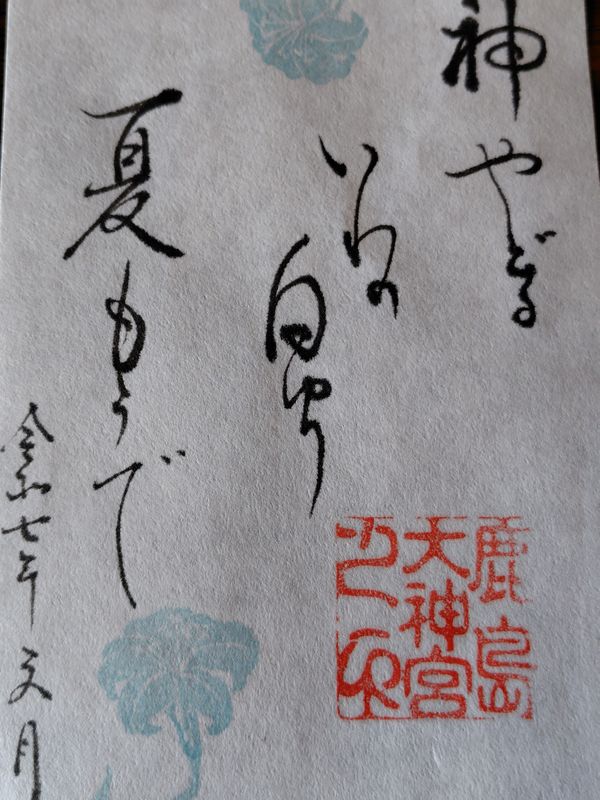 神やどる
いわの白ゆり
夏もうで
令和七年文月
鹿島
大神宮
之印